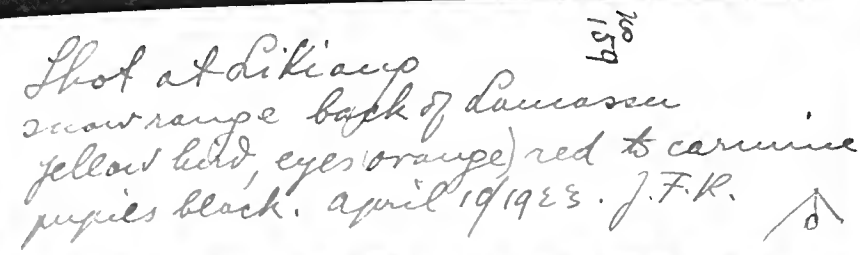 No 159
Shot at Likiang
snow range back of Lamassu
yellow bird, eyes (orange) red to carmine
pupils black. April 19/1923. J.F.R.